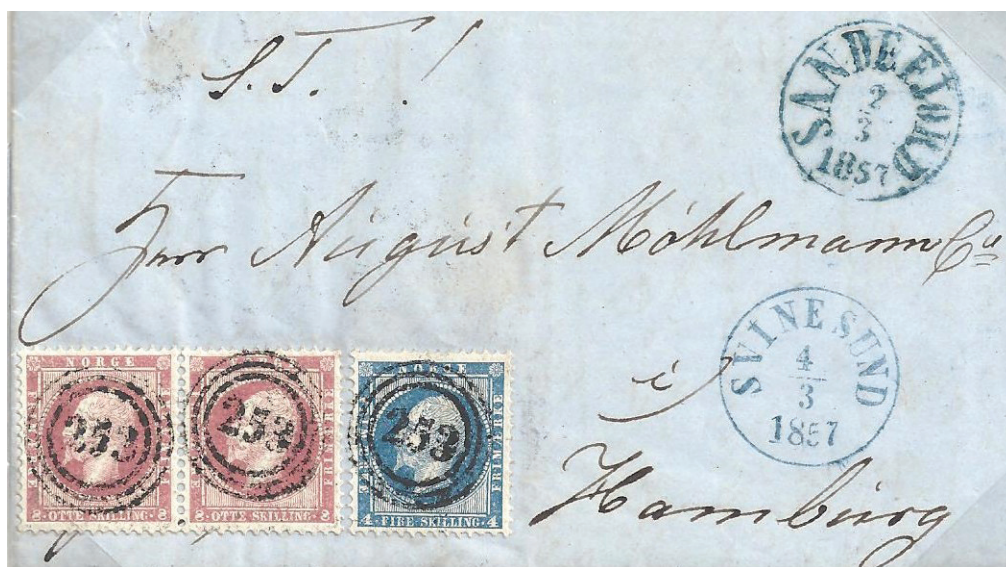 S. T. !
SANDEFJORD
2
3
1857
Herr August Möhlmann Co
SVINESUND
4
3
1857
i
Hamburg
NORGE
FRIMÆRKE
253
8 · OTTE SKILLING · 8
253
8 · OTTE SKILLING · 8
NORGE
FRIMÆRKE
253
4 · FIRE SKILLING · 4